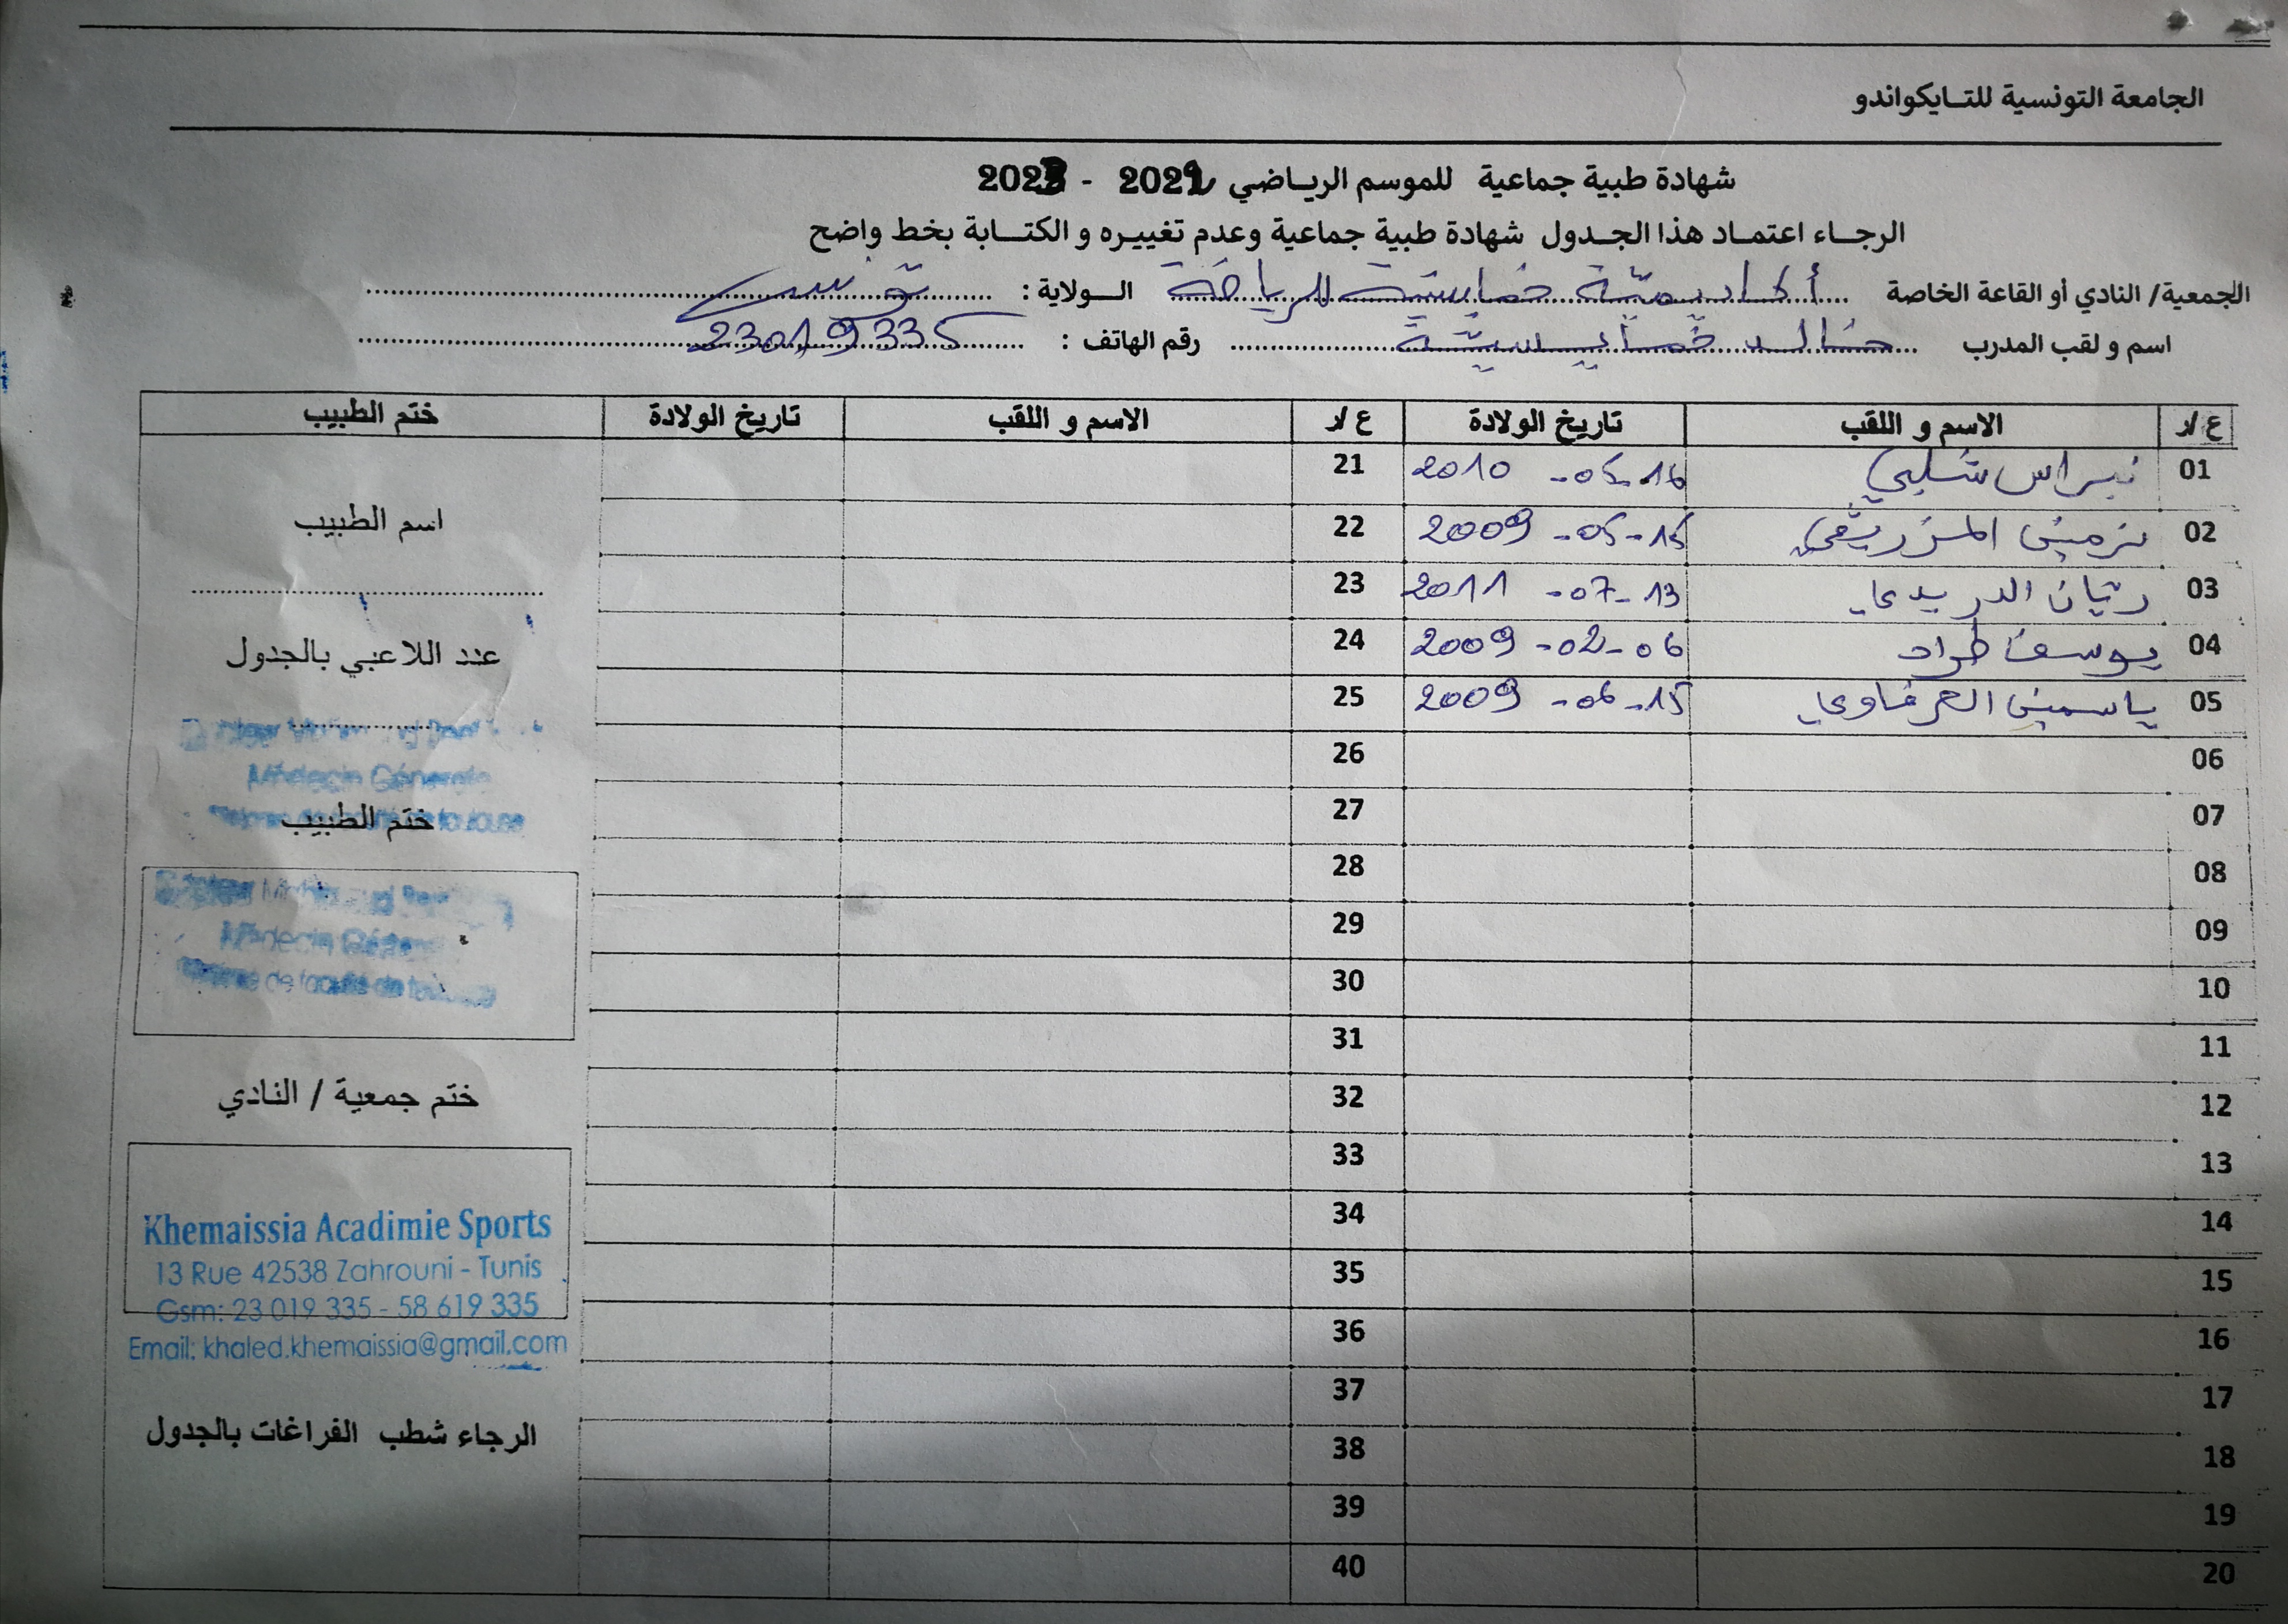 الجامعة التونسية للتـايكواندو
شهادة طبية جماعية للموسم الرياضي 2022 - 2023
الرجـاء اعتمـاد هذا الجـدول شهادة طبية جماعية وعدم تغييـره و الكتـابة بخط واضح
الجمعية/ النادي أو القاعة الخاصة أكاديميّة خمايسيّة للرياضة الـولاية : تونس
اسم و لقب المدرب خالد خمايسيّة رقم الهاتف : 23019335
ع/ر الاسم و اللقب تاريخ الولادة ع/ر الاسم و اللقب تاريخ الولادة ختم الطبيب
01 نبراس شلبي 16-05-2010 21
02 نرمين المزريقي 15-05-2009 22
03 ريّان الدريدي 13-07-2011 23
04 يوسف طراد 06-02-2009 24
05 ياسمين العرفاوي 15-06-2009 25
06 26
07 27
08 28
09 29
10 30
11 31
12 32
13 33
14 34
15 35
16 36
17 37
18 38
19 39
20 40
اسم الطبيب
عدد اللاعبي بالجدول
Médecin Générale
ختم الطبيب
Médecin
de faculté de
ختم جمعية / النادي
Khemaissia Acadimie Sports
13 Rue 42538 Zahrouni - Tunis
Gsm: 23 019 335 - 58 619 335
Email: khaled.khemaissia@gmail.com
الرجاء شطب الفراغات بالجدول